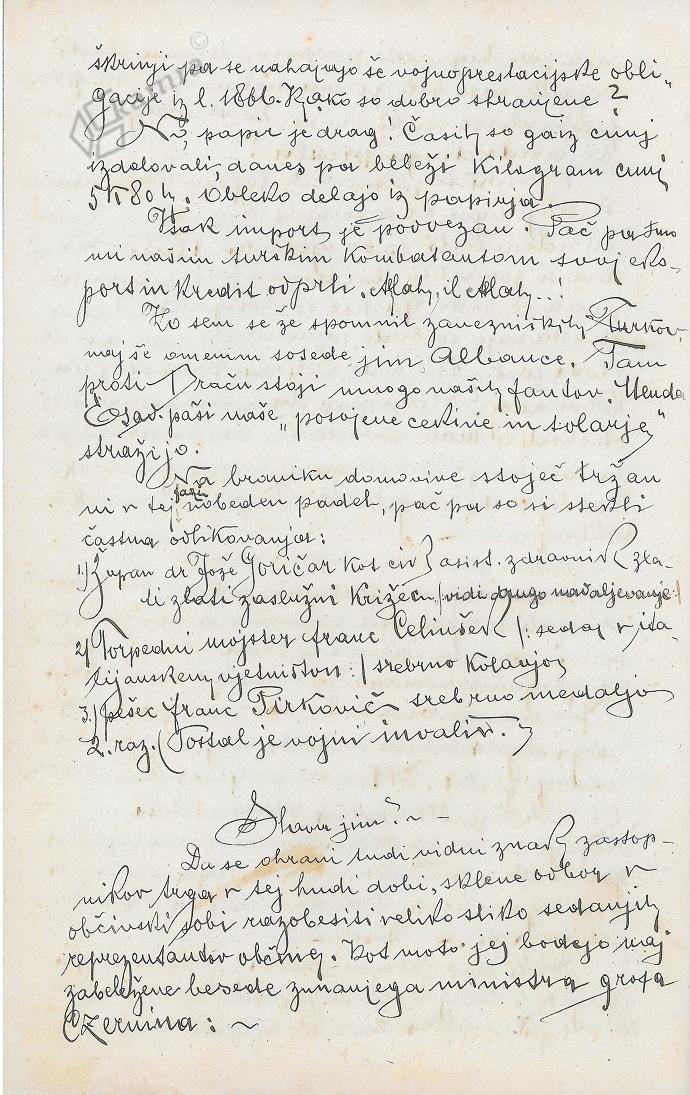 škrinji pa se nahajajo še vojnoprestacijske obli-
gacije iz l. 1866. Kako so dobro shranjene?
Nô, papir je drag! Časih so ga iz cunj
izdelovali, danes pa beleži Kilogram cunj
5 K 80 h. Obleko delajo iz papirja.
Vsak import je podvezan. Pač pa smo
mi našim turskim Kombatantom svoj eks-
port in kredit odprli. Allah, il Allah..!
Ko sem se že spomnil zavezniških Turkov,
naj še omenim sosede jim, Albance. Tam
proti Draču stoji mnogo naših fantov.
Esad paši naše „posojene cekine in tolarje"
stražijo.
Na braniku domovine stoječ tržan
ni v tej fazi nobeden padel, pač pa so si stekli
častna odlikovanja:
1.) Župan dr Jože Goričar kot civ. asist. zdravnik zla-
ti zlati zaslužni Križec /:vidi drugo nadaljevanje:/
2) Torpedni mojster Franc Celinšek /: sedaj v ita-
lijanskem vjetništvu :/ srebrno Kolajno,
3.) pešec Franc Pirkovič srebrno medaljo
2. raz. (Postal je vojni invalid.)
Slava jim! ~ -
Da se ohrani tudi vidni znak zastop-
nikov trga v tej hudi dobi, sklene odbor v
občinski sobi razobesiti veliko sliko sedanjih
reprezentantov občine. Kot moto jej bodejo naj
zabeležene besede zunanjega ministra grofa
Czernina: ~